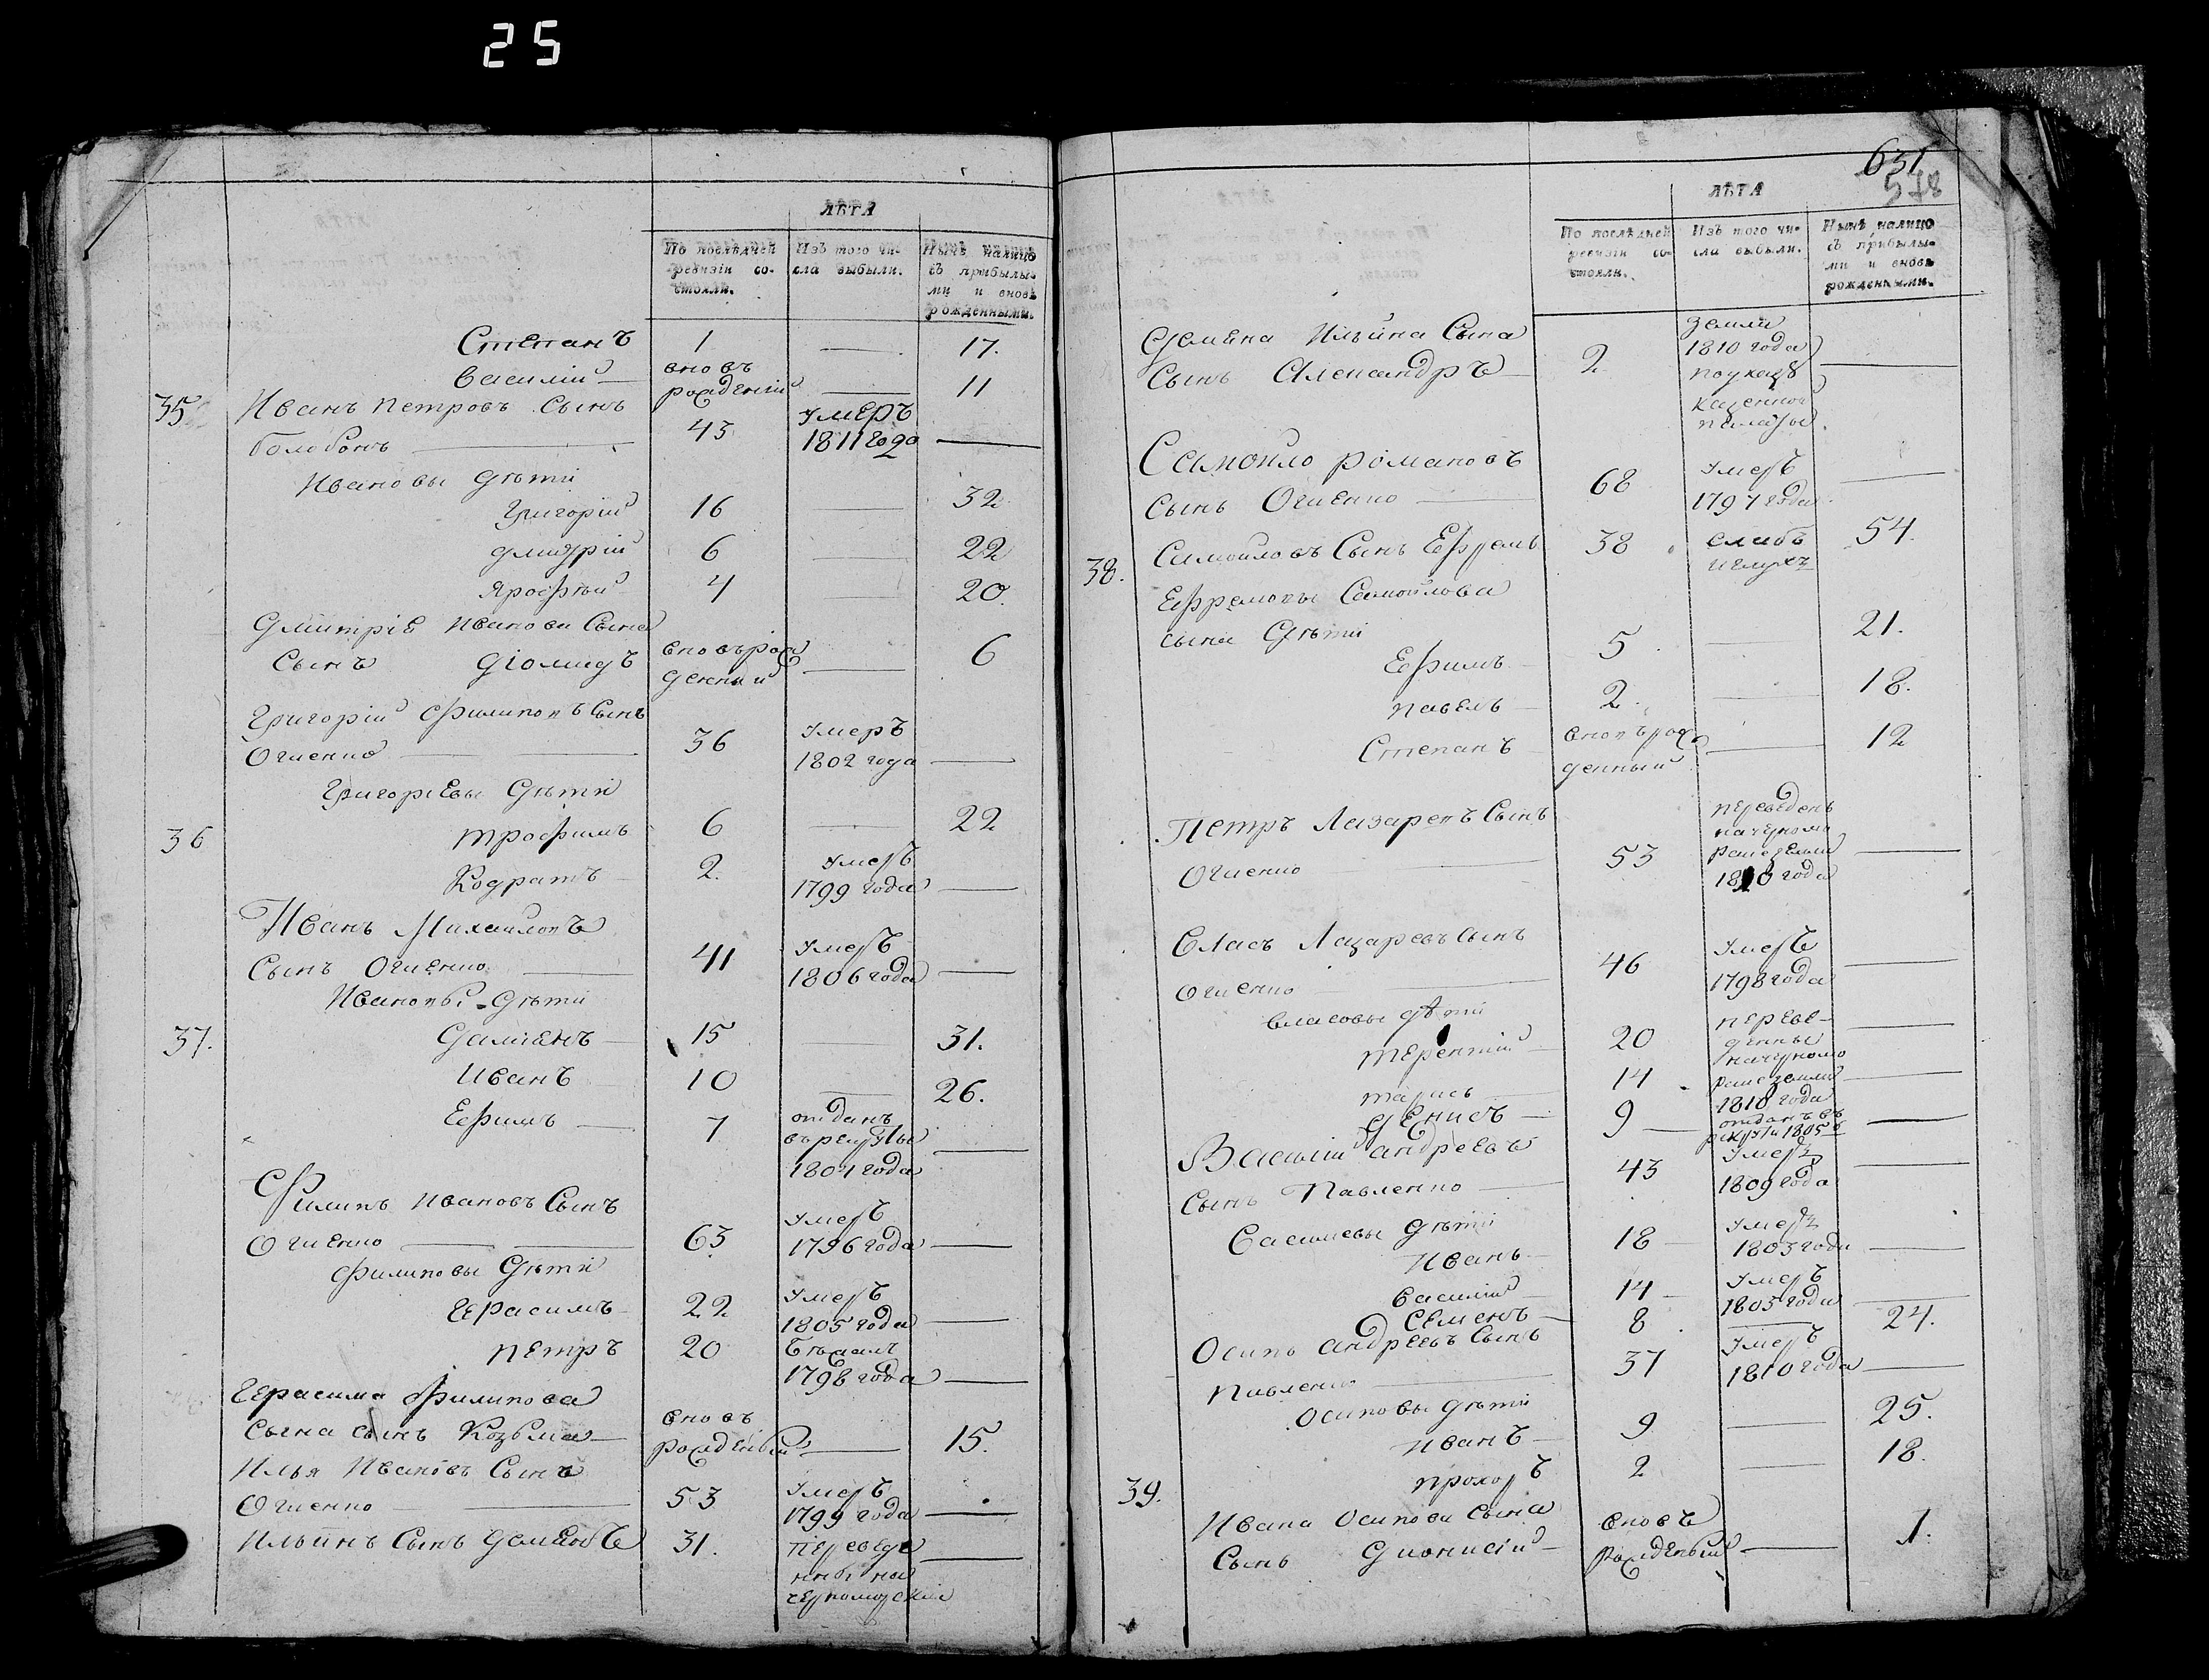 25
ЛѢТА
По послѣдней ревизіи со-стояли.
Изъ того чи-сла выбыли.
Нынѣ налицо съ прибылы-ми и вновь рожденными.
Степанъ 1 — 17.
Василій вновь рожденный — 11
35 Иванъ Петровъ Сынъ
Голобокъ — 43 Умеръ 1811 года —
Ивановы Дѣти
Григорій 16 — 32
Дмитрій 6 — 22
Ярофѣй 4 — 20.
Дмитрія Иванова Сына
Сынъ Діомидъ вновь рожденный — 6
Григорій Филиповъ Сынъ
Огиенко — 36 Умеръ 1802 года —
Григоріевы Дѣти
36 Трофимъ 6 — 22
Кодратъ 2. Умеръ 1799 года —
Иванъ Михайловъ
Сынъ Огиенко — 41 Умеръ 1806 года —
Ивановы Дѣти
37. Даміянъ 15 — 31.
Иванъ 10 — 26.
Ефимъ 7 отданъ въ рекруты 1804 года —
Филипъ Ивановъ Сынъ
Огиенко — 63 Умеръ 1796 года —
Филиповы Дѣти
Герасимъ 22 Умеръ 1805 года —
Петръ 20 Бѣжалъ 1798 года —
Герасима Филипова
Сына сынъ Козьма вновь рожденый — 15.
Илья Ивановъ Сынъ
Огиенко — 53 Умеръ 1799 года —
Ильинъ Сынъ Деменъ 31. переведенны на черноморскія —
631
578
ЛѢТА
По послѣдней ревизіи со-стояли.
Изъ того чи-сла выбыли.
Нынѣ налицо съ прибылы-ми и вновь рожденными.
Демена Ильина Сына
Сынъ Александръ 2 земли 1810 года по указу казенной палаты —
Самойло Романовъ
Сынъ Огиенко — 68 Умеръ 1797 года —
38. Самойловъ Сынъ Ефремъ 38 слабъ 54.
Ефремовы Самойлова
сына Дѣти
Ефимъ 5 — 21.
Павелъ 2. — 18.
Степанъ вновь рожденный — 12
Петръ Лазаревъ Сынъ
Огиенко — 53 переведенъ на черноморс земли 1810 года —
Власъ Лазаревъ сынъ
Огиенко — 46 Умеръ 1798 года —
Власовы дѣти
Терентій 20 переве-денны —
Тарасъ 14 на черноморс земли 1810 года —
Денисъ — 9 — отданъ въ рекруты 1805 —
Василій Андреевъ
Сынъ Павленко — 43 Умеръ 1809 года —
Васильевы Дѣти
Иванъ — 18 — Умеръ 1803 года —
Василій 14 — Умеръ 1805 года —
Семенъ — 8 — 24.
Осипъ Андреевъ Сынъ
Павленко — 37 Умеръ 1810 года —
Осиповы Дѣти
Иванъ 9 — 25.
39. Прохоръ 2 — 18.
Ивана Осипова Сына
Сынъ Діонисій вновь рожденый — 1.